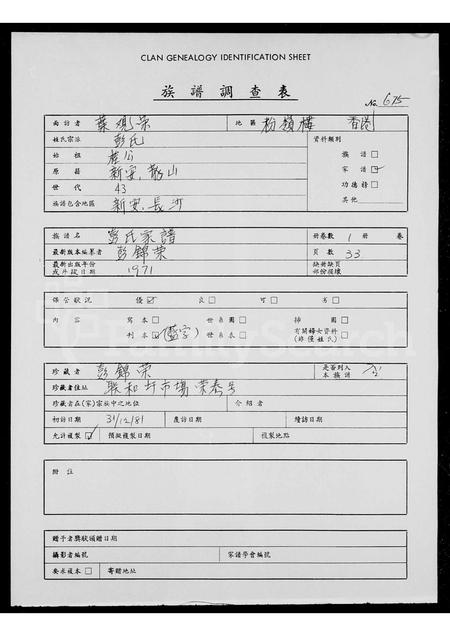 CLAN GENEALOGY IDENTIFICATION SHEET
族譜調查表
No. 675
面訪者 葉觀榮 地區 粉嶺樓 香港
姓氏宗派 彭氏 資料類別
始祖 產公 族譜 □
原籍 新安, 龍山 家譜 ☑
世代 43 功德榜 □
族譜包含地區 新安, 長沙 其他
族譜名 彭氏家譜 冊卷數 1 冊 卷
最新版本編纂者 彭錦榮 頁數 33
最新出版年份或斤故日期 1971 缺冊缺頁部份損壞
保公狀況 優 ☑ 良 □ 可 □ 劣 □
內容 寫本 □ 世系圖 □ 插圖 □
刊本 ☑ 世系表 □ 有關婦女資料(非僅姓氏) □
珍藏者 彭錦榮 是否列入本族譜
珍藏者住址 聯和圩市場榮泰号
珍藏者在(家)宗族中之地位 介紹者
初訪日期 31/12/81 度訪日期 續訪日期
允許複製 ☑ 預擬複製日期 複製地點
附註
贈予者獎狀頒贈日期
攝影者編號 家譜學會編號
要求複本 □ 寄贈地址
FamilySearch